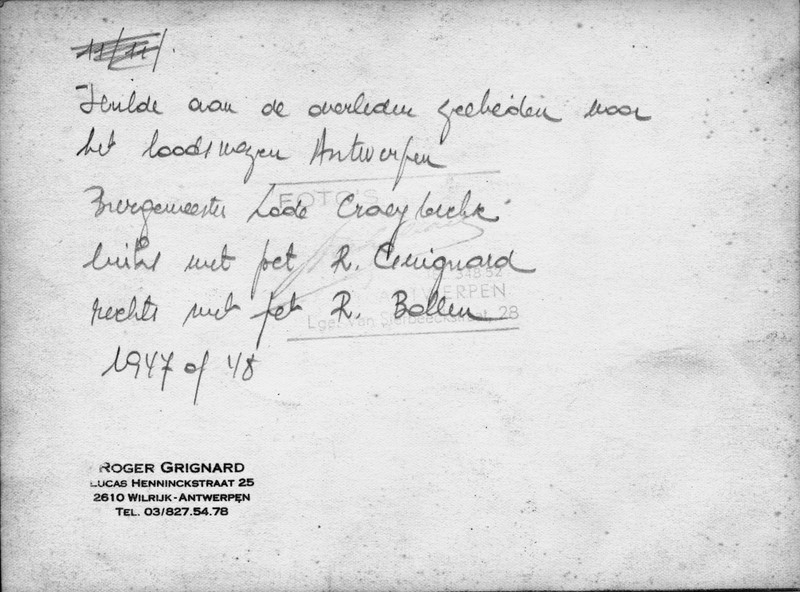 11/11/.
Hulde aan de overleden geeheiden voor
het loodswezen Antwerpen
Burgemeester Lode Craeybeckx
links met pet R. Grignard
rechts met pet R. Bollen
1947 of 48
FOTO'S
348 52
ANTWERPEN
28
ROGER GRIGNARD
LUCAS HENNINCKSTRAAT 25
2610 WILRIJK-ANTWERPEN
TEL. 03/827.54.78